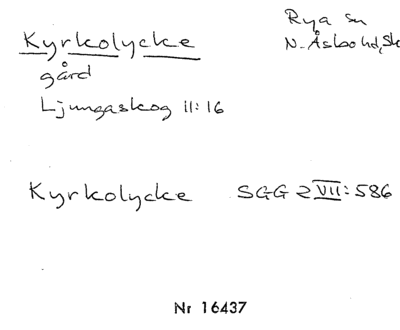 Kyrkolycke
Rya sn
N. Åsbo hd, Sk
gård
Ljungaskog 11:16
Kyrkolycke SGG 2 VII: 586
Nr 16437